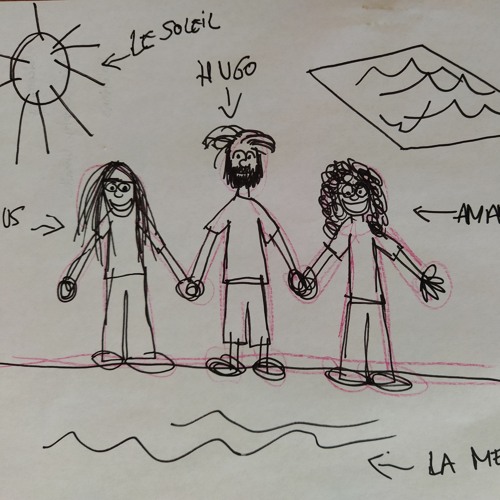 LE SOLEIL
HUGO
US
AMA
LA ME